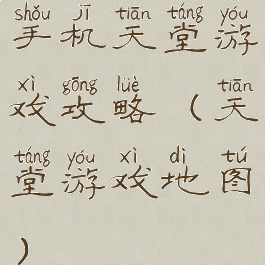 shǒu jī tiān táng yóu
手机天堂游
xì gōng lüè tiān
戏攻略（天
táng yóu xì dì tú
堂游戏地图
）